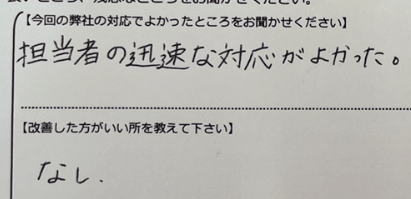 【今回の弊社の対応でよかったところをお聞かせください】
担当者の迅速な対応がよかった。
【改善した方がいい所を教えて下さい】
なし.